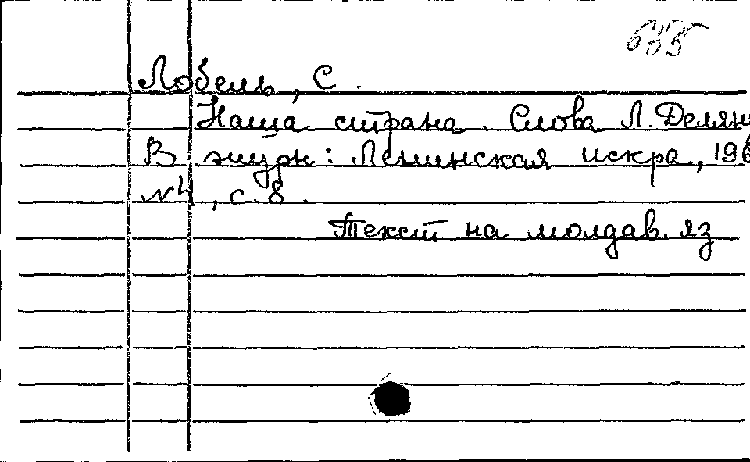 Лобель, С.
Наша страна. Слова Л. Делян
В журн: Ленинская искра, 196
№4, с. 8.
Текст на молдав. яз